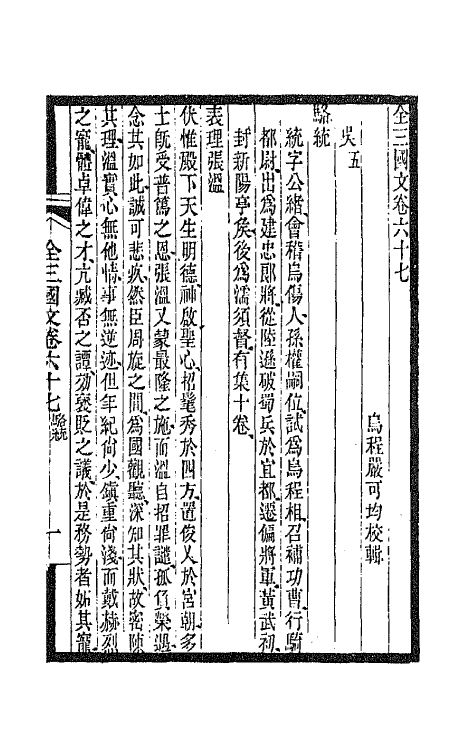 全三國文卷六十七
烏程嚴可均校輯
吳五
駱統
統字公緖會稽烏傷人孫權嗣位試爲烏程相召補功曹行騎
都尉出爲建忠郎將從陸遜破蜀兵於宜都遷偏將軍黃武初
封新陽亭矦後爲濡須督有集十卷
表理張溫
伏惟殿下天生明德神啟聖心招髦秀於四方置俊乂於宮朝多
士旣受普篤之恩張溫又蒙最隆之施而溫自招罪譴孤負榮遇
念其如此誠可悲疚然臣周旋之間爲國觀聽深知其狀故密陳
其理溫實心無他情事無逆迹但年紀尙少鎮重尙淺而戴赫烈
之寵體卓偉之才亢臧否之譚効褒貶之議於是務勢者妬其寵
全三國文卷六十七 駱統
一